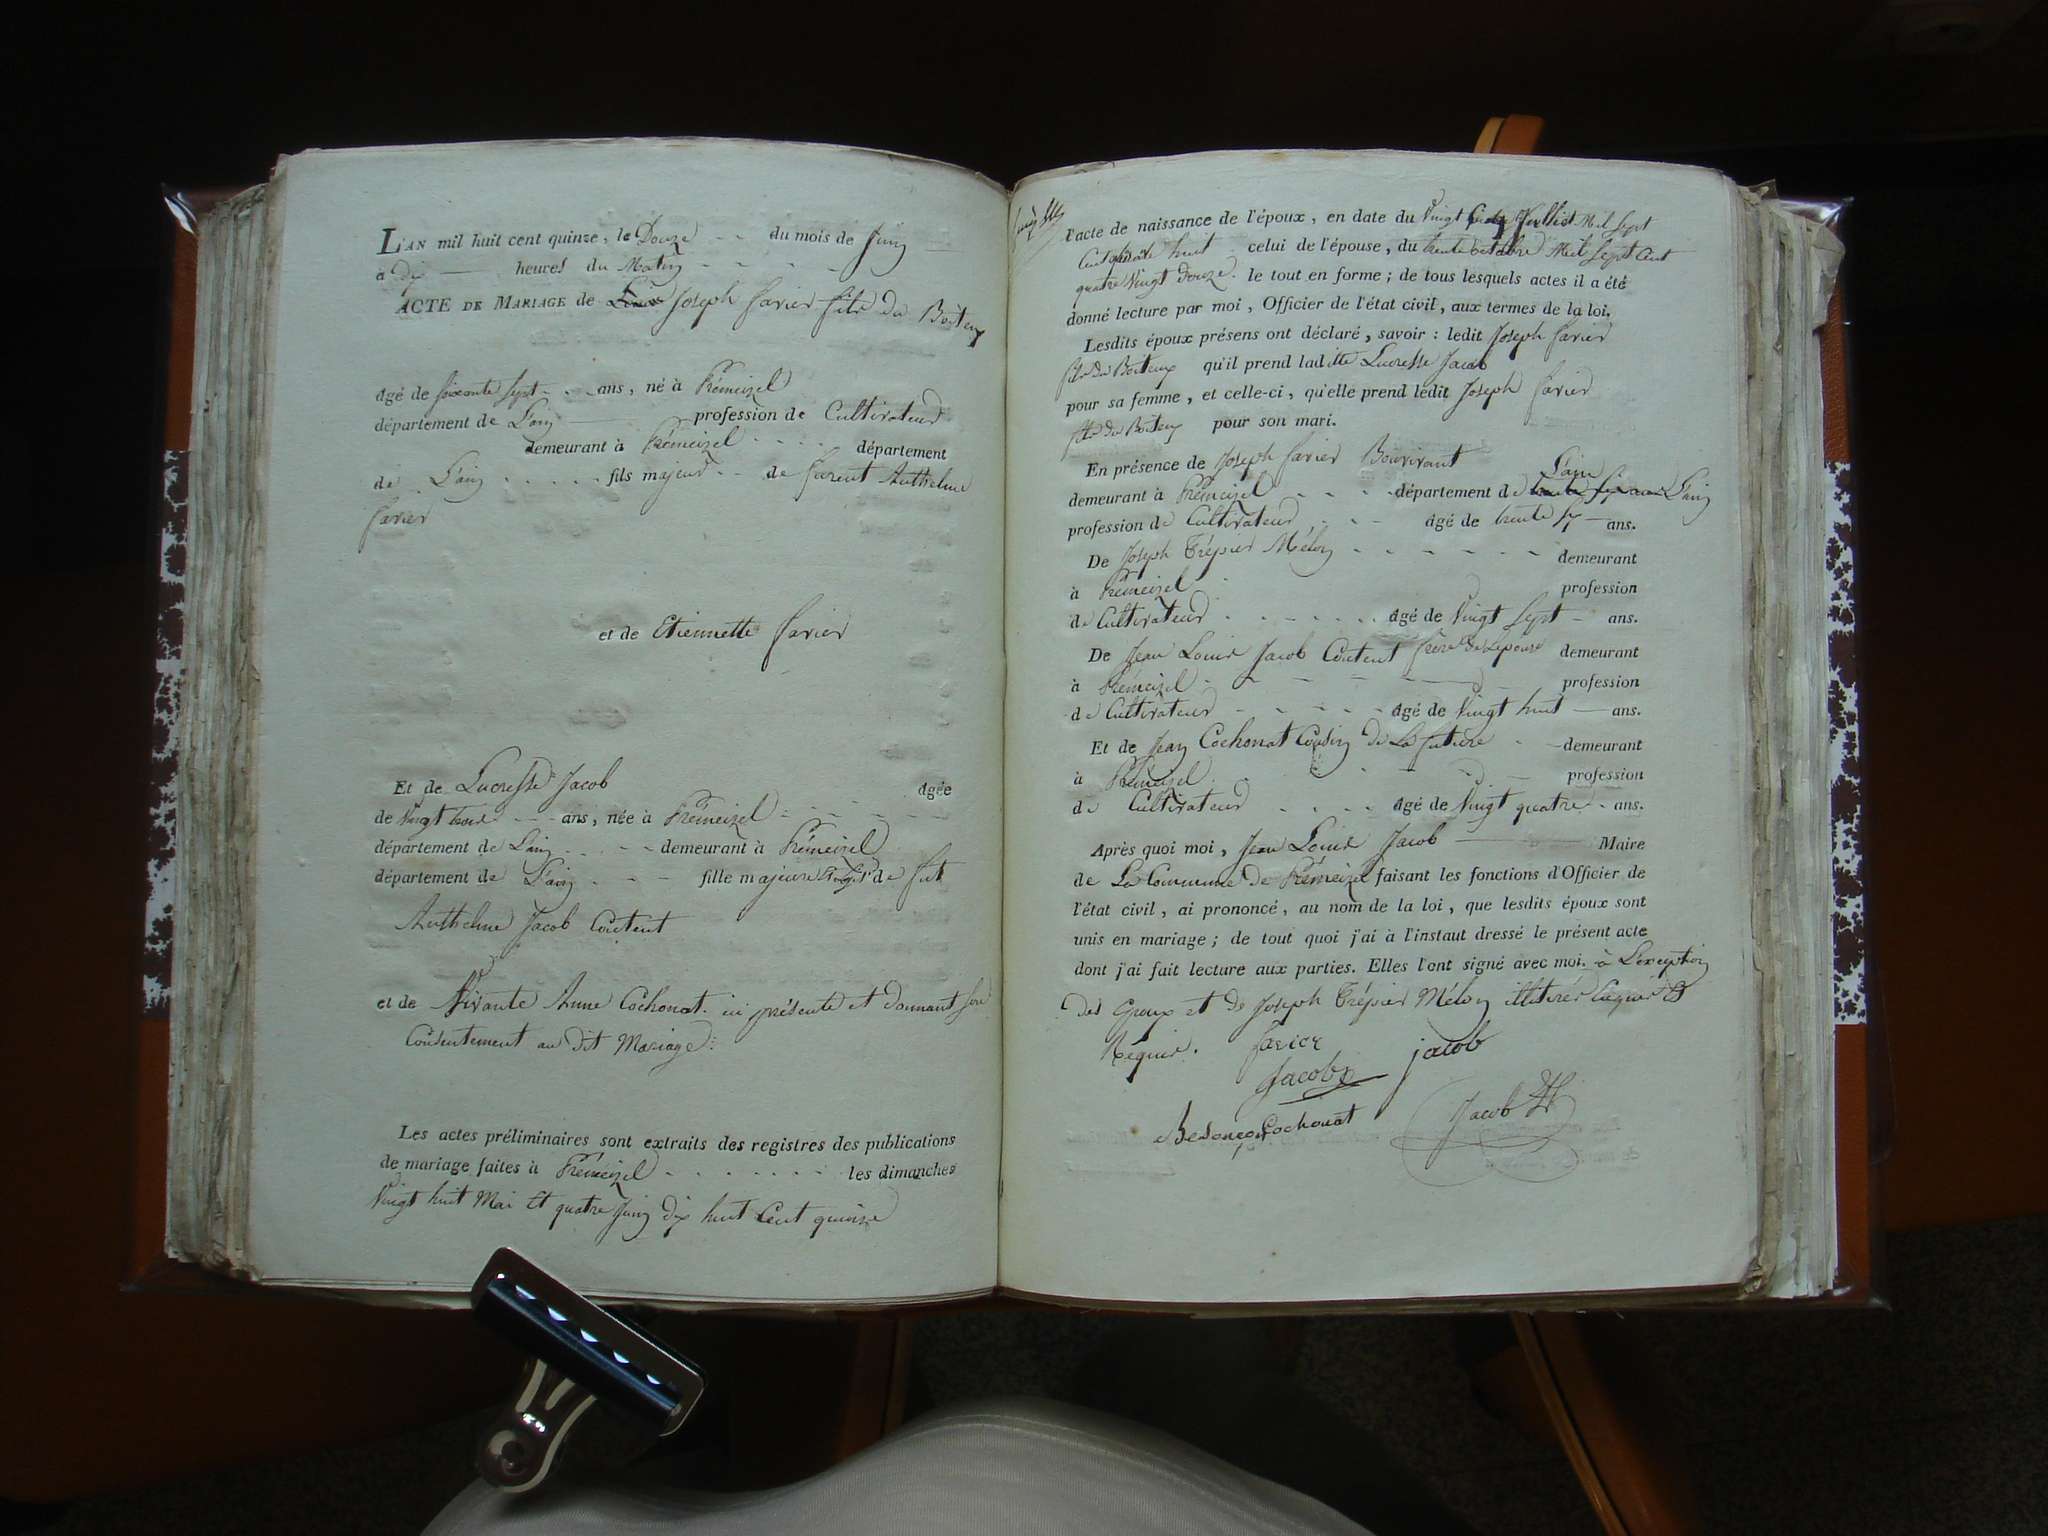 L'AN mil huit cent quinze, le Douze du mois de Juin
à dix heures du Matin
ACTE DE MARIAGE de Joseph Favier fils du Boiteux
âgé de soixante sept ans, né à Prémeizel
département de L'ain profession de Cultivateur
demeurant à Prémeizel département
de L'ain fils majeur de Anthelme
Favier
et de Etiennette Favier
Et de Lucresse Jacob âgée
de Vingt trois ans, née à Prémeizel
département de L'ain demeurant à Prémeizel
département de L'ain fille majeure de fut
Anthelme Jacob Coutent
et de Vivante Anne Cochonat ici présente et donnant son
Consentement au dit Mariage
Les actes préliminaires sont extraits des registres des publications
de mariage faites à Prémeizel les dimanches
Vingt huit Mai Et quatre Juin dix huit Cent quinze
l'acte de naissance de l'époux, en date du Vingt Juillet Mil Sept
Cent huit celui de l'épouse, du trente octobre Mil Sept Cent
quatre Vingt Douze le tout en forme ; de tous lesquels actes il a été
donné lecture par moi, Officier de l'état civil, aux termes de la loi.
Lesdits époux présens ont déclaré, savoir : ledit Joseph Favier
fils du Boiteux qu'il prend ladite Lucresse Jacob
pour sa femme, et celle-ci, qu'elle prend ledit Joseph Favier
fils du Boiteux pour son mari.
En présence de Joseph Favier Bourivant
demeurant à Prémeizel département de L'ain
profession de Cultivateur âgé de trente ans.
De Joseph Trépier Mélon demeurant
à Prémeizel profession
de Cultivateur âgé de Vingt Sept ans.
De Jean Louis Jacob Coutent frère de Lepouse demeurant
à Prémeizel profession
de Cultivateur âgé de Vingt huit ans.
Et de Jean Cochonat Cousin de La future demeurant
à Prémeizel profession
de Cultivateur âgé de Vingt quatre ans.
Après quoi moi, Jean Louis Jacob Maire
de La Commune de Prémeizel faisant les fonctions d'Officier de
l'état civil, ai prononcé, au nom de la loi, que lesdits époux sont
unis en mariage ; de tout quoi j'ai à l'instaut dressé le présent acte
dont j'ai fait lecture aux parties. Elles l'ont signé avec moi. à L'exception
des Epoux et de Joseph Trépier Mélon illitérés Enquis Et
Réquis. favier
Jacob jacob
Cochonat Jacob